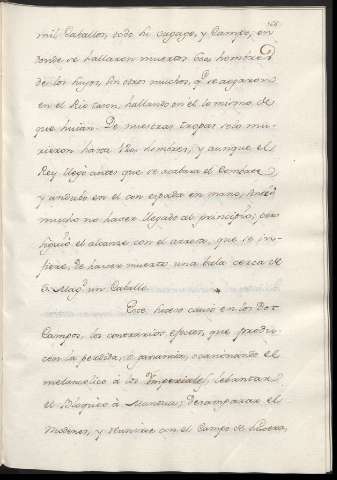 mil Caballos, todo el vagage, y Campo, en
donde se hallaron muertos hombres
de los suyos, sin otros muchos, q.e se aogaron
en el Rio hallando en el lo mismo, de
que huian. De nuestras tropas solo mu-
rieron hasta hombres, y aunque el
Rey llegó antes que se acabara el Combate
y anduvo en el con espada en mano, sintió
mucho no haver llegado al principio; pro-
siguió el alcance con el que se in-
fiere, de haver muerto una bala cerca de
S. Mag.d un Caballo.
Este suceso causó en los Dos
Campos, los contrarios efectos, que produ-
cen la perdida, o ganancia, ocasionando el
melancolico à los Imperiales, lebantar
el Bloqueo à Mantua; desamparar el
Modenes, y reunirse con el Campo de